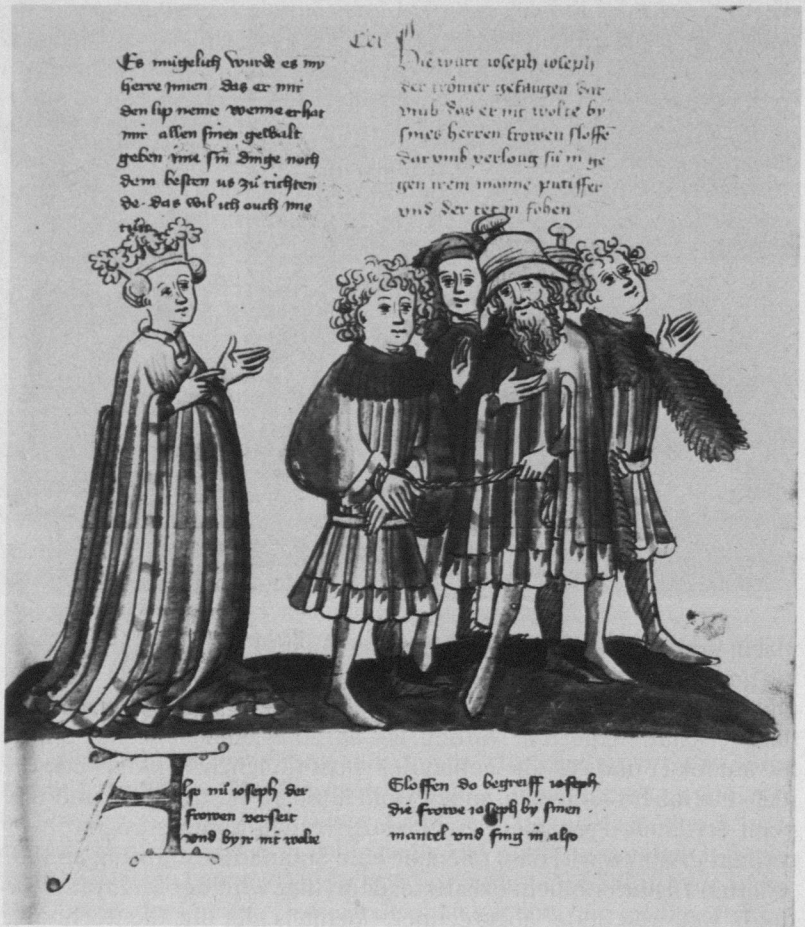 Es mùgelich wurde es mÿ
herre jnnen das er mir
den lip neme wenne er hat
mir allen sinen gewalt
geben ime sin dinge noch
dem besten us zů richten
de das wil ich ouch ime
tůn
Cci
Hie wart ioseph ioseph
der trômer gefangen dar
vmb das er nit wolte by
sines herren frowen sloffē
dar vmb verloug sù in ge
gen irem manne putiffer
vnd der tet in fohen
Also nù ioseph der
frowen verseit
vnd by ir nit wolte
Sloffen do begreiff ioseph
die frowe ioseph by sinen
mantel vnd fing in also